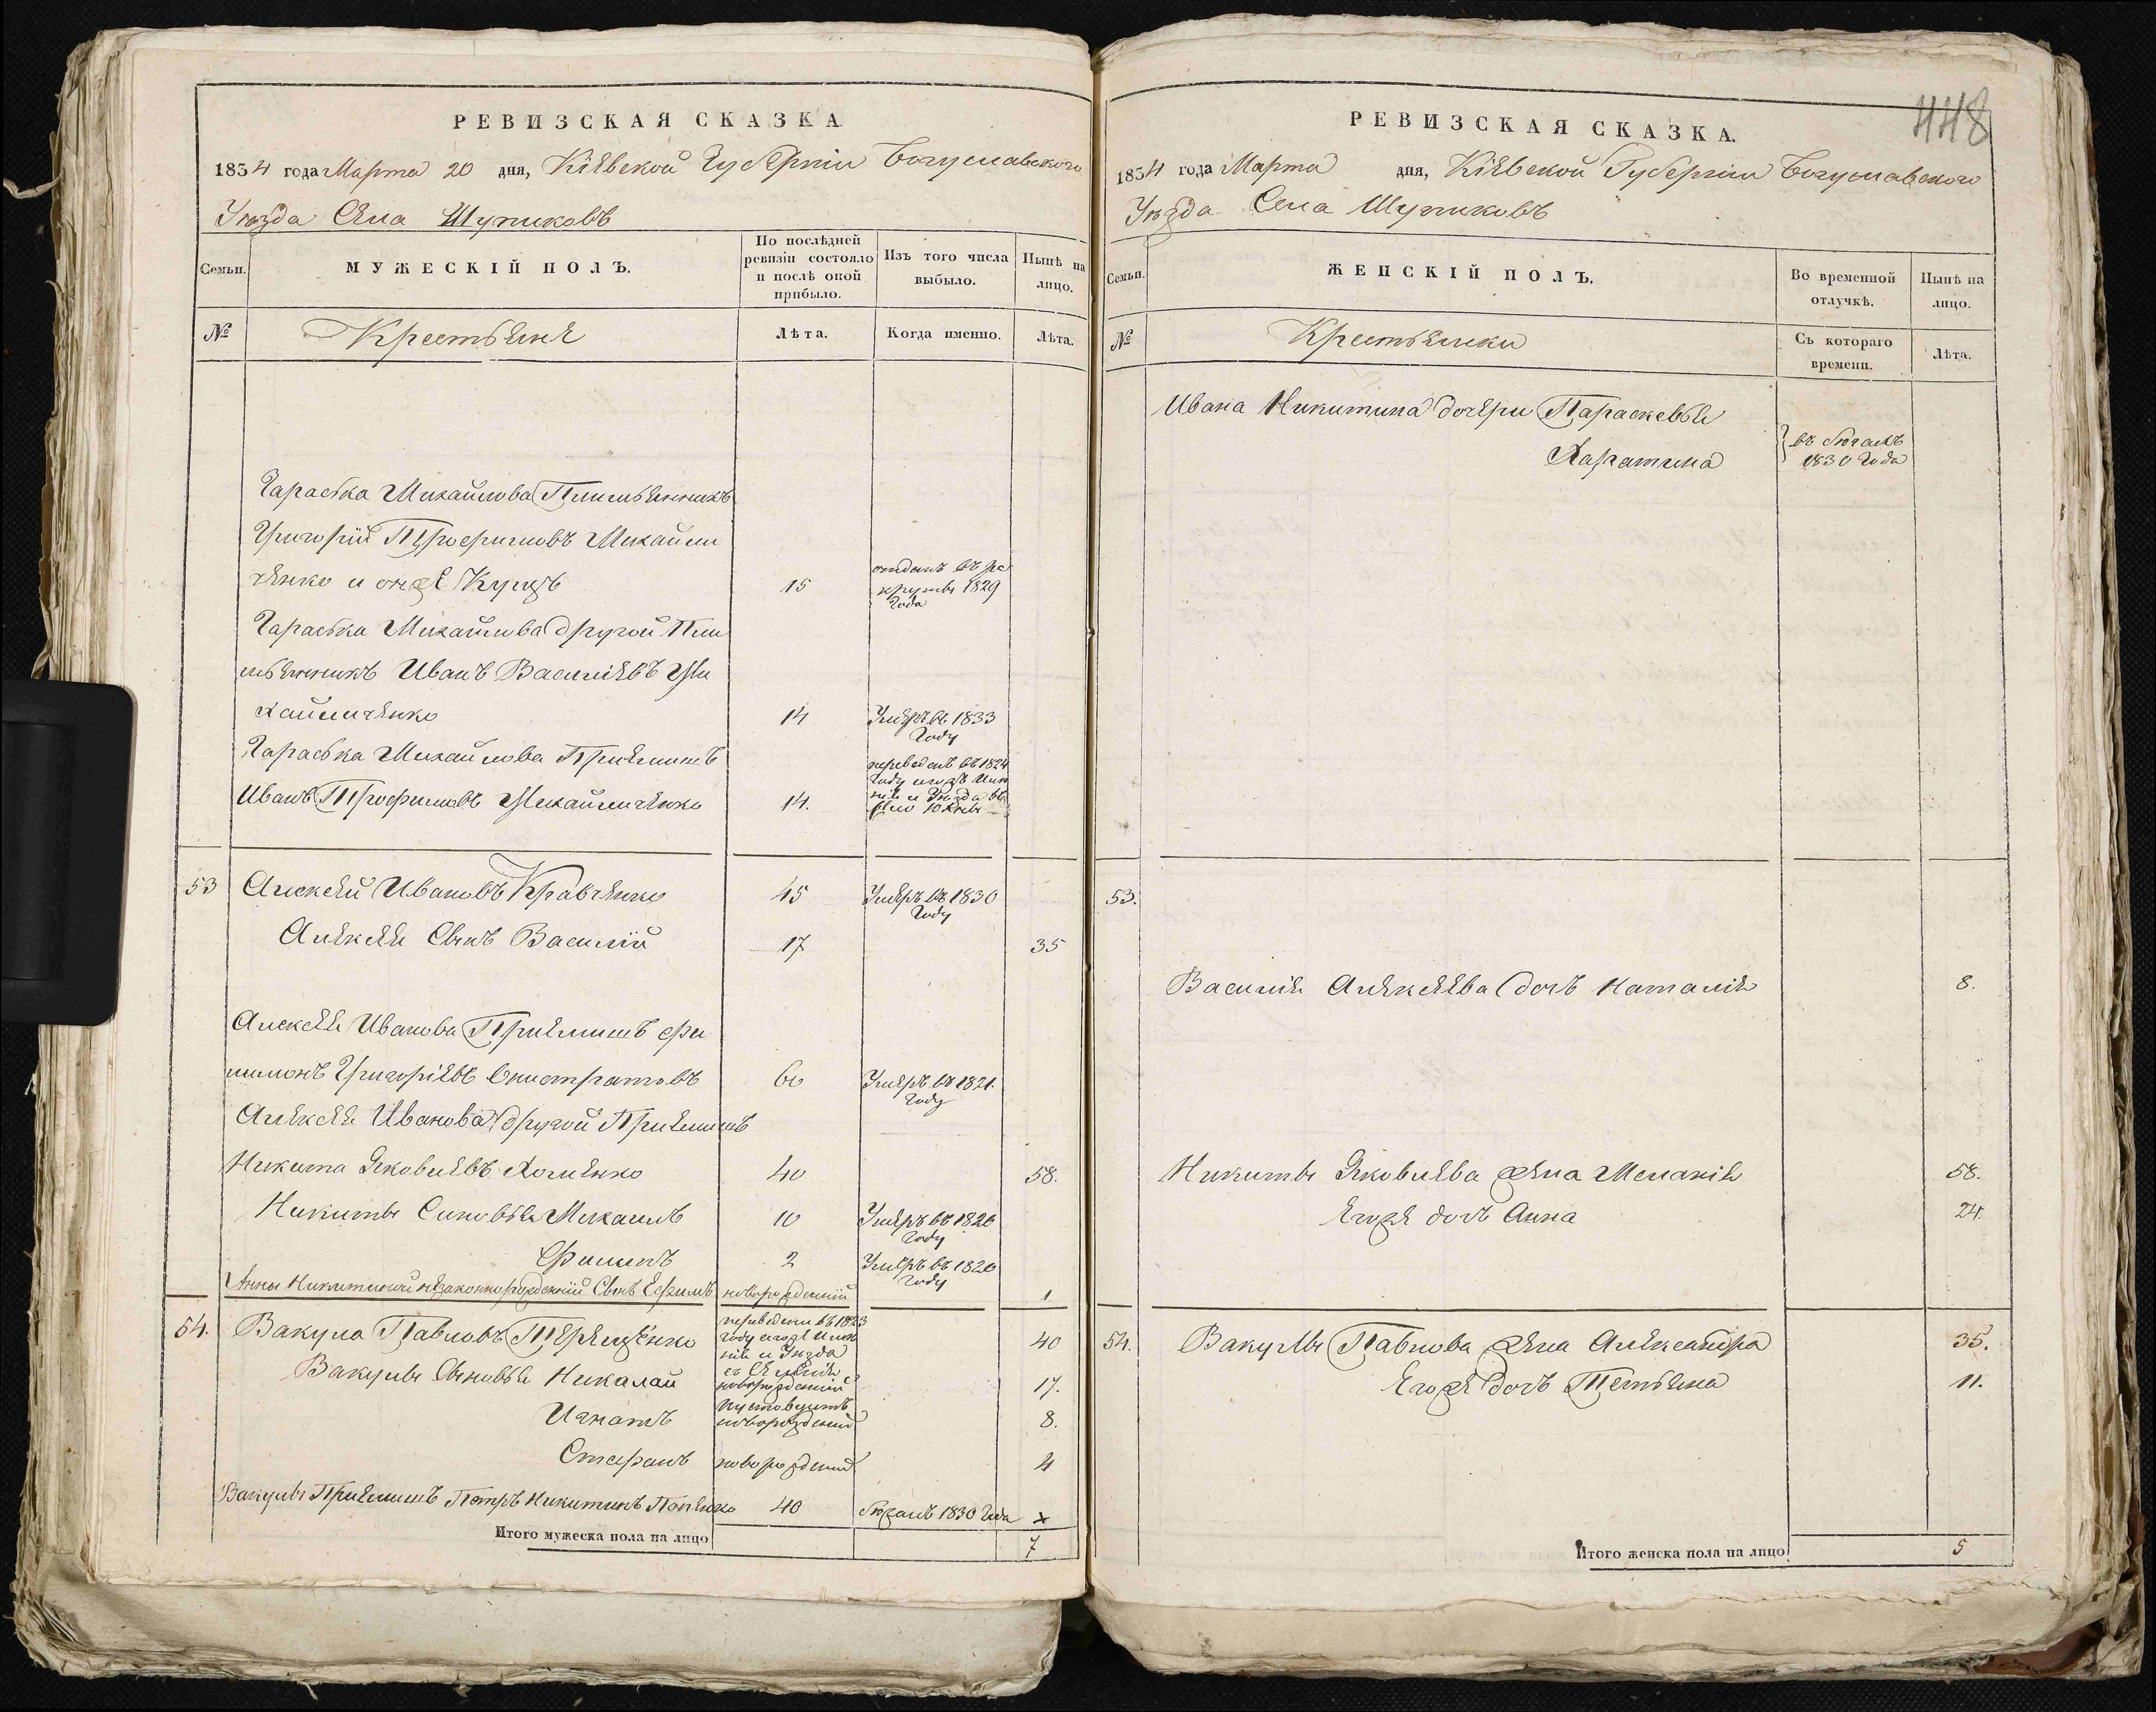 РЕВИЗСКАЯ СКАЗКА.
1834 года Марта 20 дня, Кіевской Губерніи Богуславского
Уѣзда Села Шупиковъ
Семьи.
МУЖЕСКІЙ ПОЛЪ.
По послѣдней
ревизіи состояло
и послѣ оной
прибыло.
Изъ того числа
выбыло.
Нынѣ на
лицо.
№
Крестьяне
Лѣта.
Когда именно.
Лѣта.
Гараська Михайлова Племьенникъ
Григорій Трофимовъ Михайли
ченко и онже Куцъ 15 отданъ въ ре
круты 1829
Года
Гараська Михайлова другой Пле
мьенникъ Иванъ Василіевъ Ми
хайличенко 14 Умеръ въ 1833
Году
Гараська Михайлова Приемишъ
Иванъ Трофимовъ Михайличенко 14. переведенъ въ 1824
Году тогожъ Име
нія и Уезда въ
Село
53 Алексей Ивановъ Кравченко 45 Умеръ въ 1830
Году
Алексея Сынъ Василій 17 35
Алексея Иванова Приемишъ Фи
лимонъ Григоріевъ 60 Умеръ въ 1821.
Году
Алексея Иванова другой Приемишъ
Никита Яковлевъ Хоменко 40 58.
Никиты Синовья Михаилъ 10 Умеръ въ 1826
Году
Филипъ 2 Умеръ въ 1820
Году
Анны Никитиной незаконнорожденній Сынъ Ефимъ новорожденній 1.
54. Вакула Павловъ Терещенко переведени въ 1823
Году тогоже Име
нія и Уезда
съ Селенія 40
Вакулы Сыновья Никалай новорожденній 17.
Игнатъ новорожденній 8.
Стефанъ новорожденній 4
Вакулы Приемишъ Петръ Никитинъ 40 Бежалъ 1830 Года x
Итого мужеска пола на лицо 7
448
РЕВИЗСКАЯ СКАЗКА.
1834 года Марта дня, Кіевской Губерніи Богуславского
Уѣзда Села Шупиковъ
Семьи.
ЖЕНСКІЙ ПОЛЪ.
Во временной
отлучкѣ.
Нынѣ на
лицо.
№
Крестьянки
Съ котораго
времени.
Лѣта.
Ивана Никитина дочери Параскевья
Харатина въ бегахъ
1830 Года
53.
Василія Алексеева дочъ Наталія 8.
Никиты Яковлева жена Меланія 58.
Егоже дочъ Анна 24.
54. Вакулы Павлова жена Александра 35.
Егоже дочъ Тетьяна 11.
Итого женска пола на лицо 5